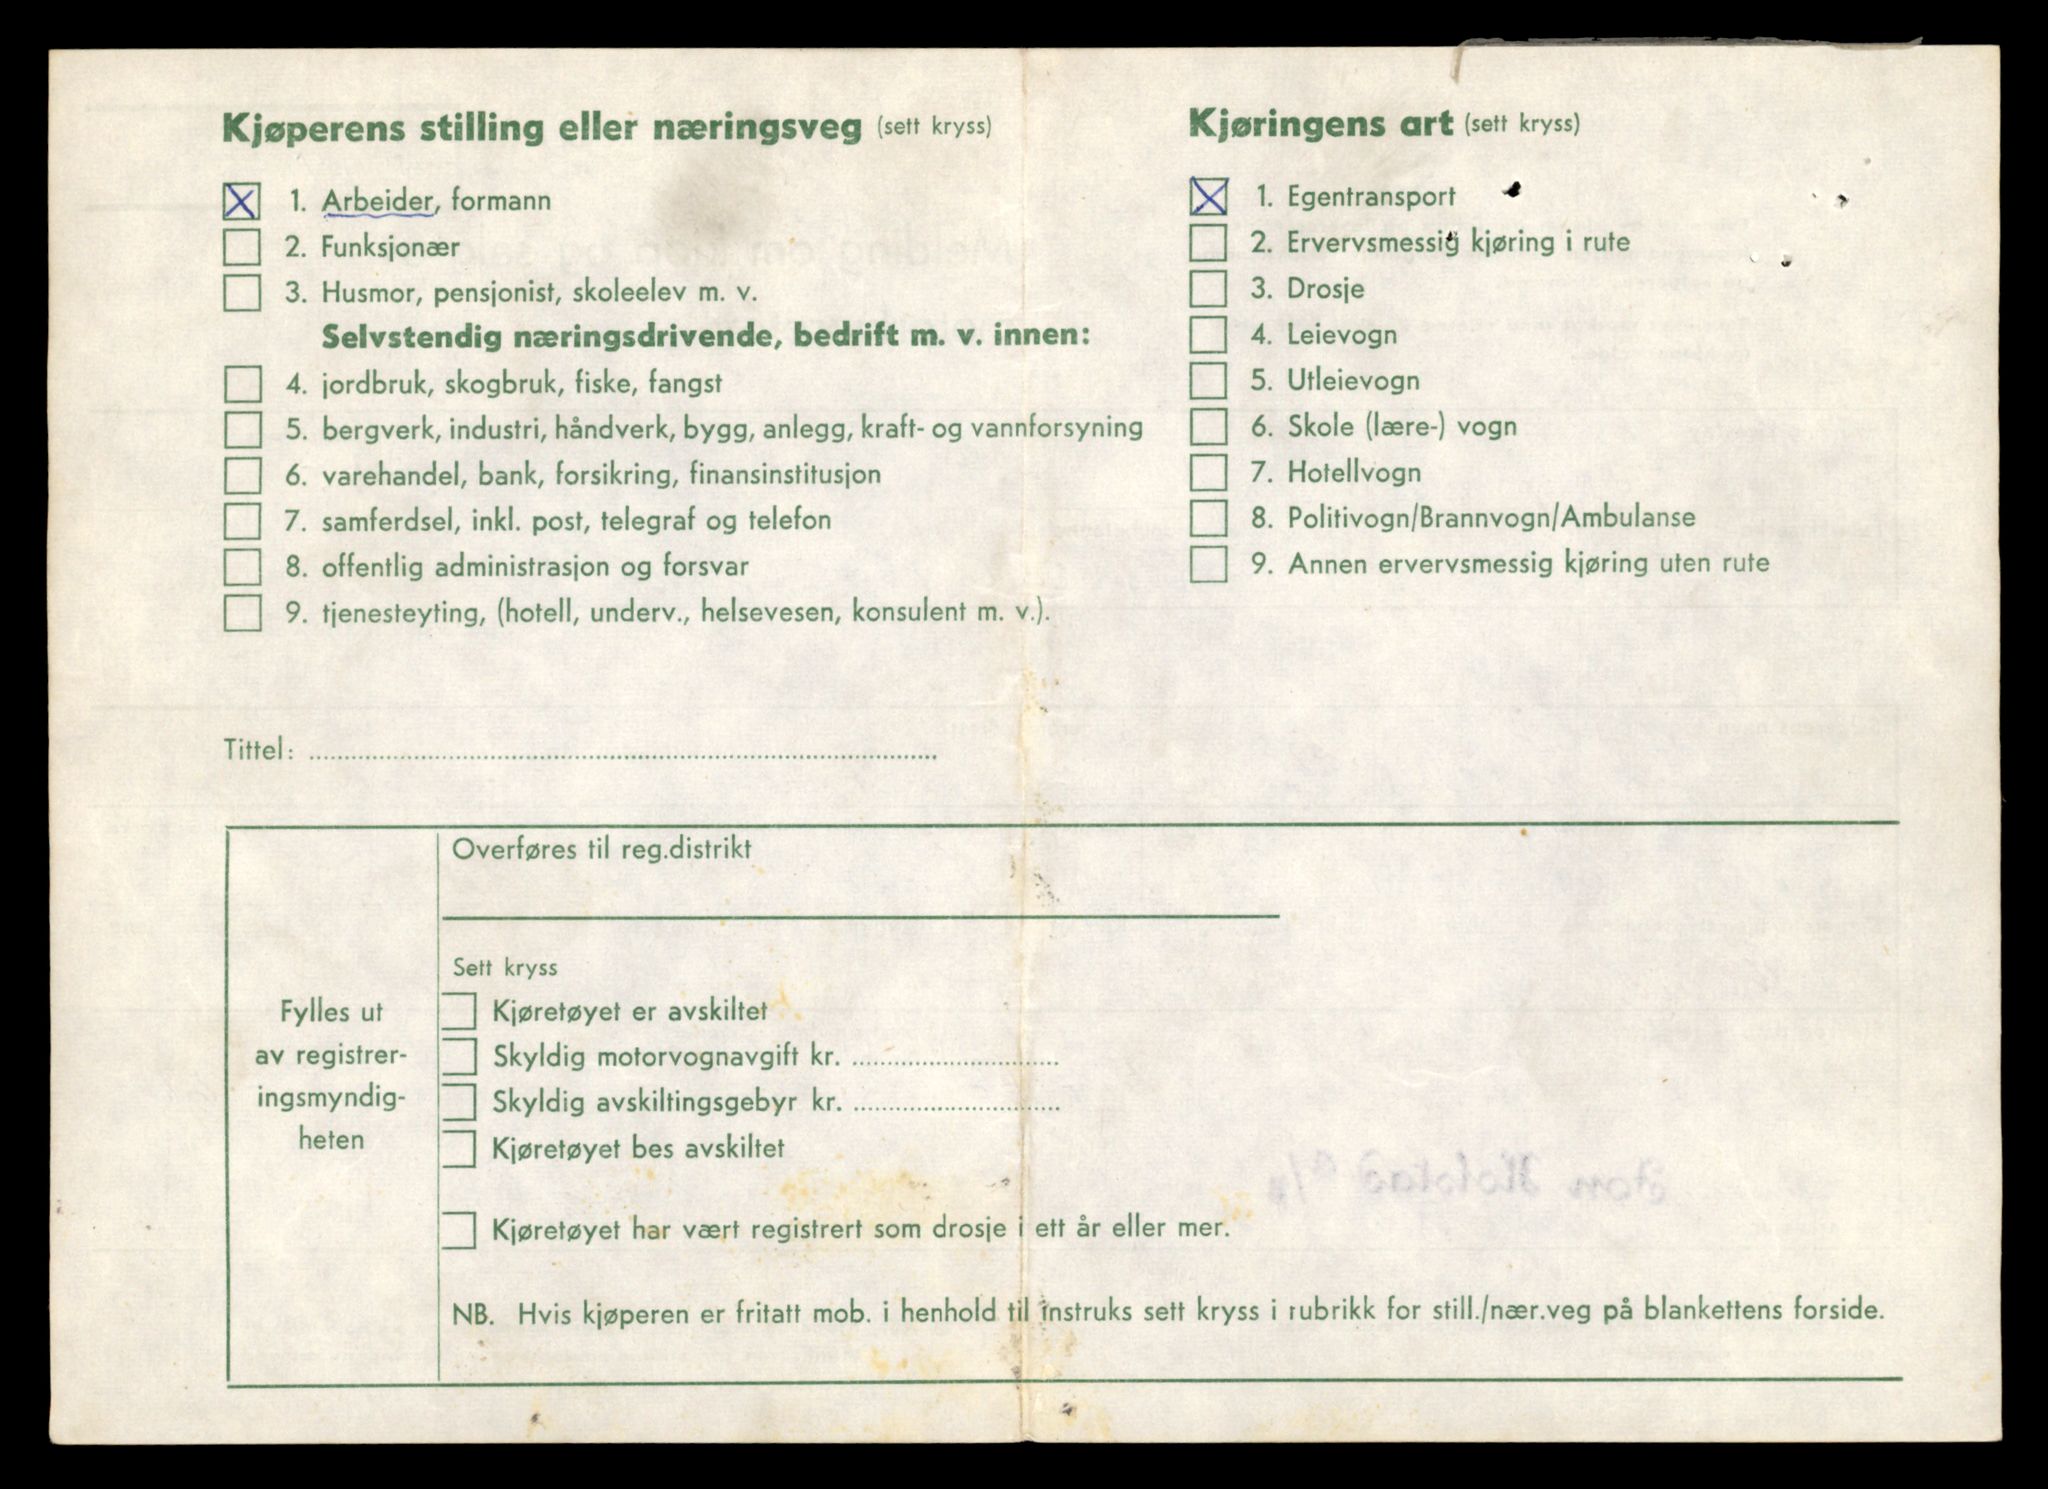 Kjøperens stilling eller næringsveg (sett kryss)
1. Arbeider, formann
2. Funksjonær
3. Husmor, pensjonist, skoleelev m. v.
Selvstendig næringsdrivende, bedrift m. v. innen:
4. jordbruk, skogbruk, fiske, fangst
5. bergverk, industri, håndverk, bygg, anlegg, kraft- og vannforsyning
6. varehandel, bank, forsikring, finansinstitusjon
7. samferdsel, inkl. post, telegraf og telefon
8. offentlig administrasjon og forsvar
9. tjenesteyting, (hotell, underv., helsevesen, konsulent m. v.).
Kjøringens art (sett kryss)
1. Egentransport
2. Ervervsmessig kjøring i rute
3. Drosje
4. Leievogn
5. Utleievogn
6. Skole (lære-) vogn
7. Hotellvogn
8. Politivogn/Brannvogn/Ambulanse
9. Annen ervervsmessig kjøring uten rute
Tittel:
Fylles ut
av registrer-
ingsmyndig-
heten
Overføres til reg.distrikt
Sett kryss
Kjøretøyet er avskiltet
Skyldig motorvognavgift kr.
Skyldig avskiltingsgebyr kr.
Kjøretøyet bes avskiltet
Kjøretøyet har vært registrert som drosje i ett år eller mer.
NB. Hvis kjøperen er fritatt mob. i henhold til instruks sett kryss i rubrikk for still./nær.veg på blankettens forside.